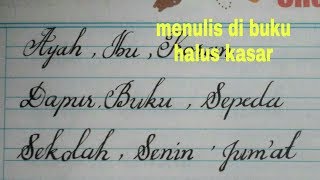 menulis di buku
halus kasar
Ayah, Ibu,
Dapur, Buku, Sepeda
Sekolah, Senin, Jum'at